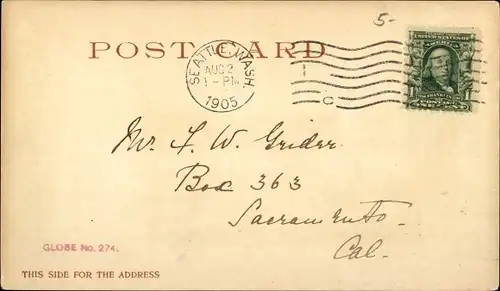 5-
POST CARD
SEATTLE, WASH.
AUG 2
1 - PM
1905
C
1
Mr. F. W. Grider
Box 363
Sacramento.
Cal.
GLOBE No. 274.
THIS SIDE FOR THE ADDRESS